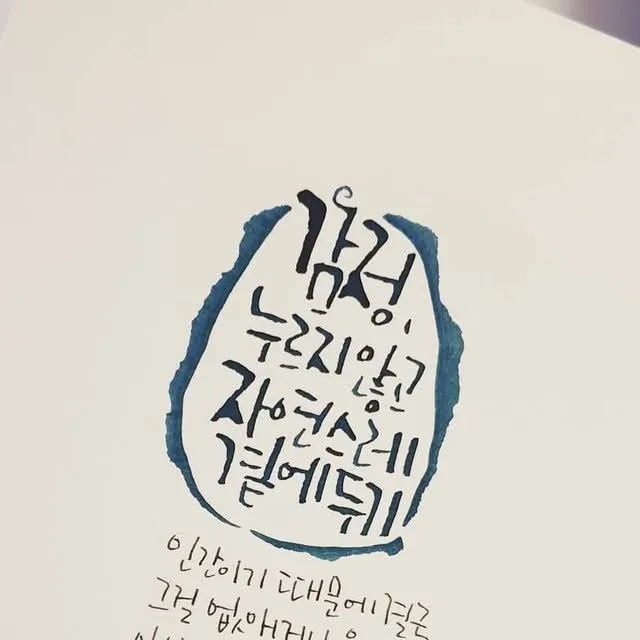 감정,
누르지 않고
자연스레
곁에 두기
인간이기 때문에 결론
그걸 없애거나